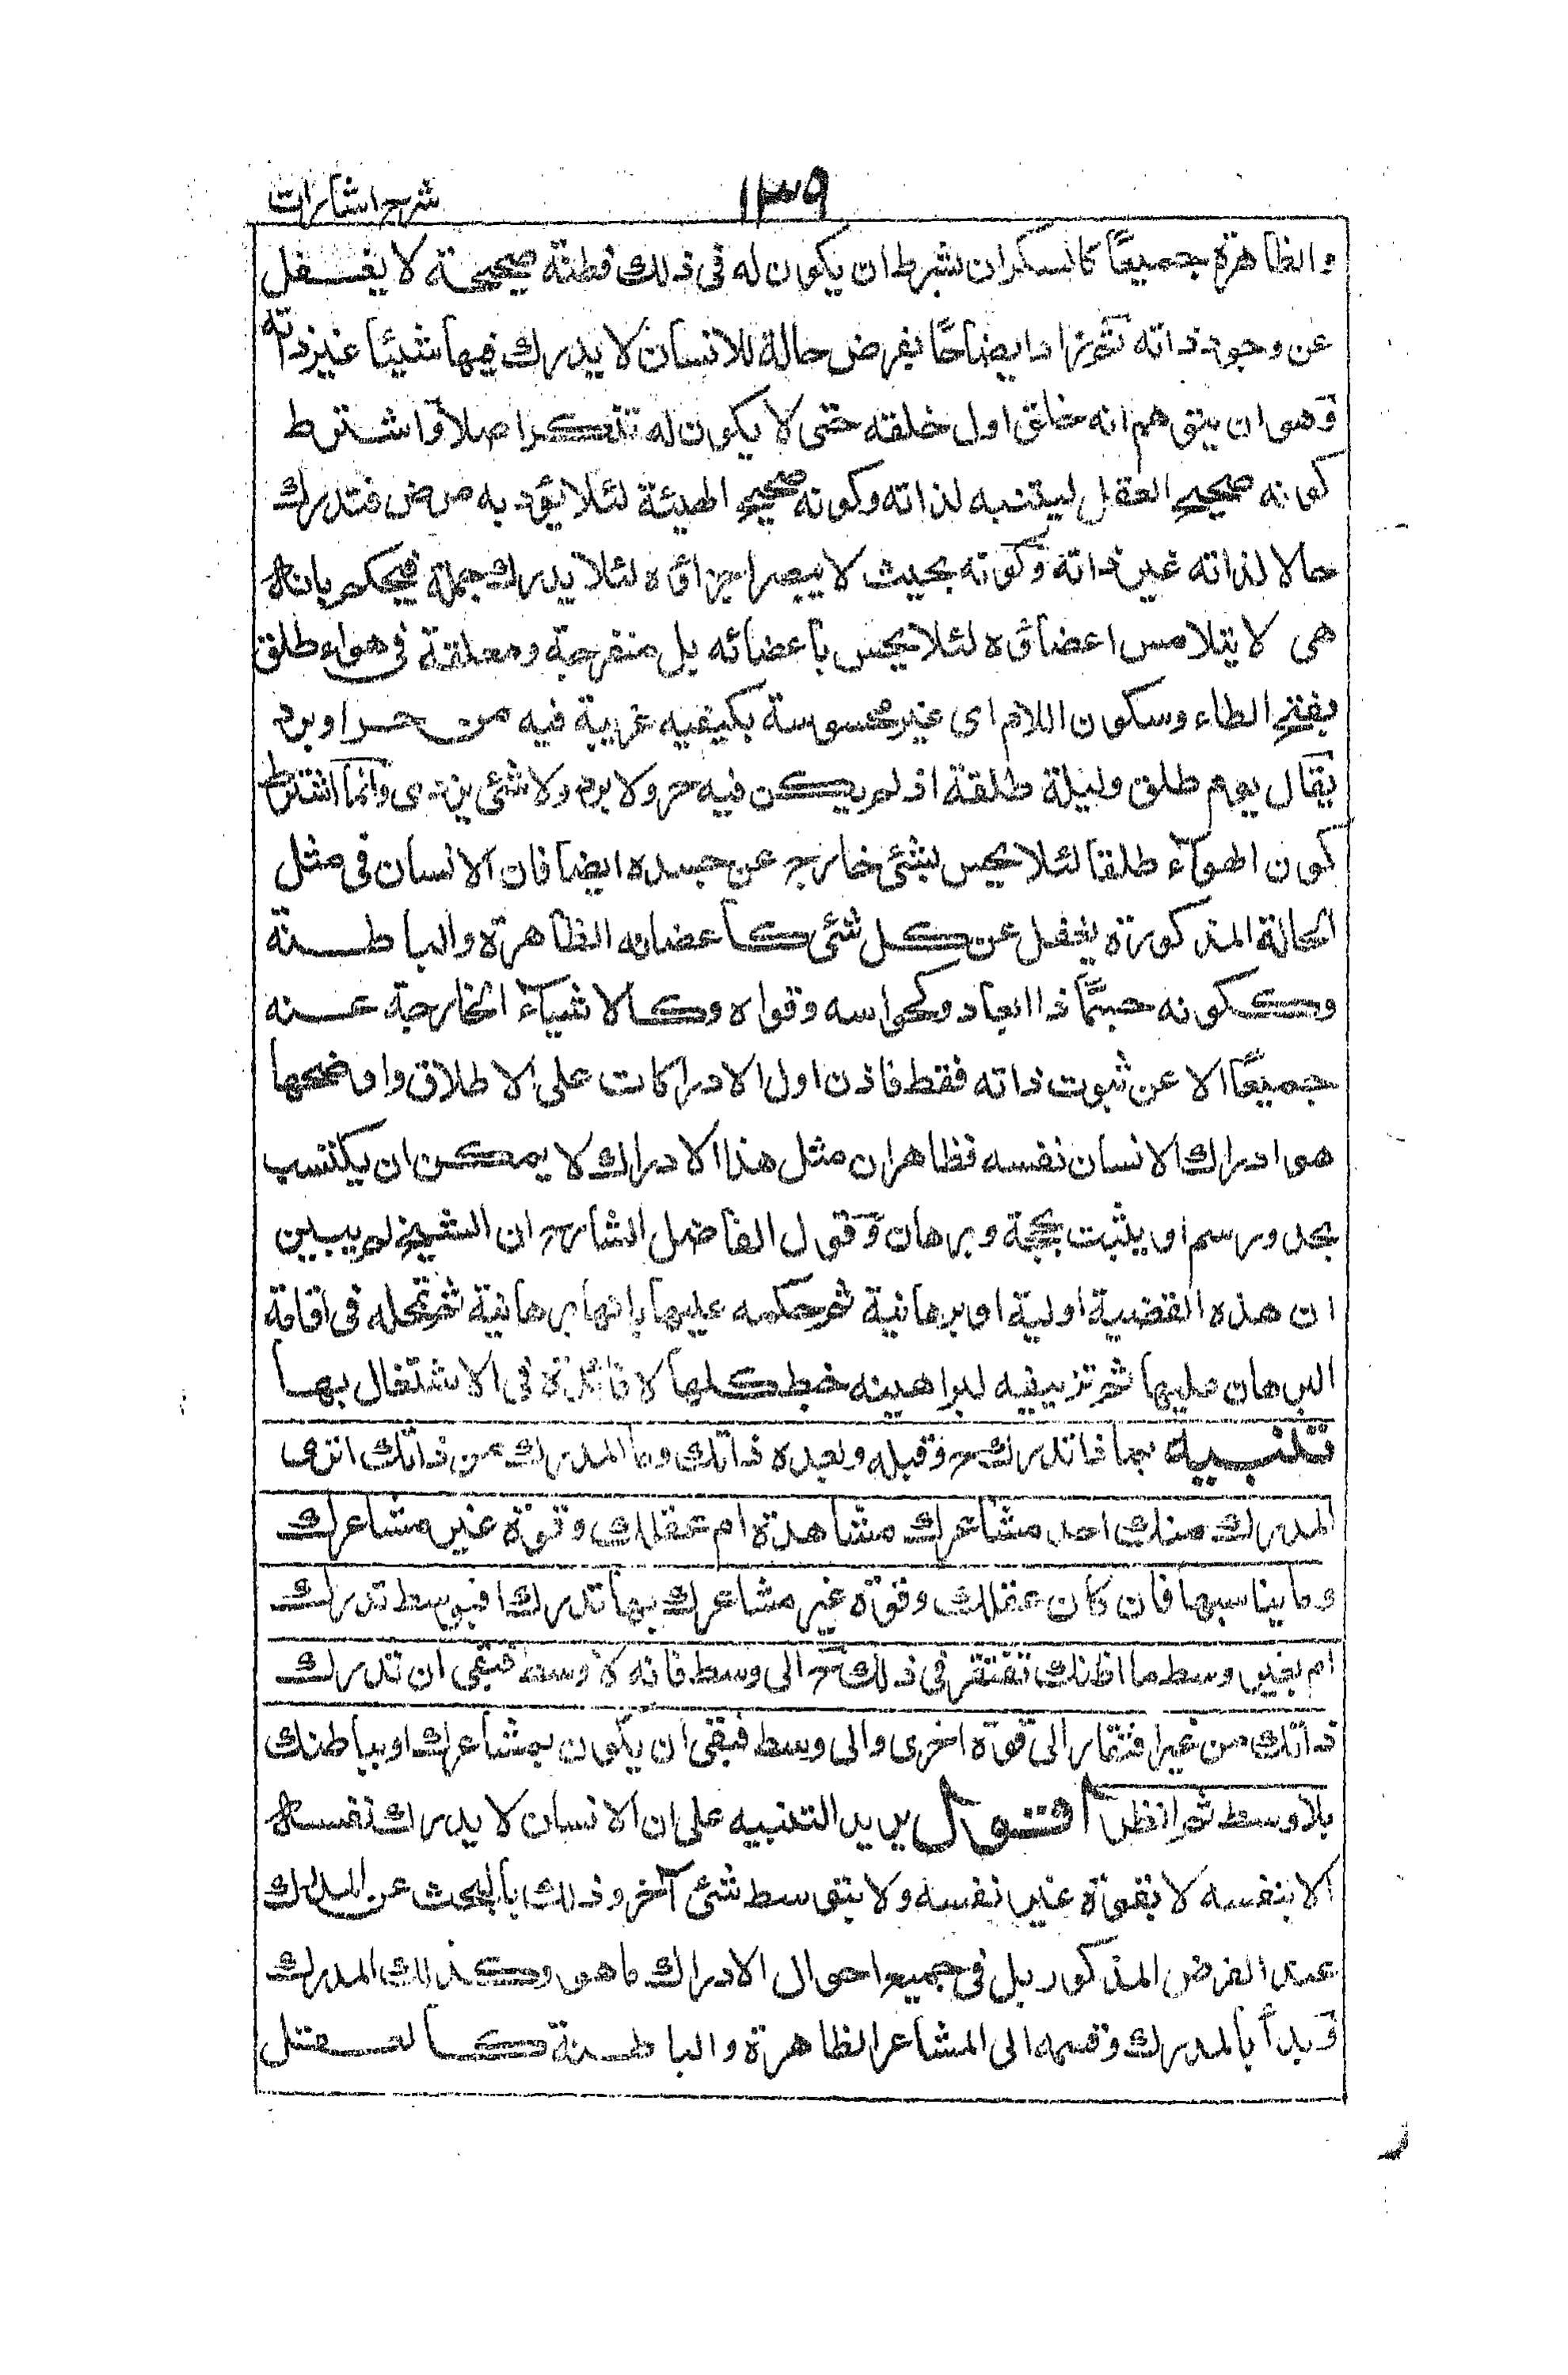 ١٣٩
شرح اشارات
والظاهرة جميعًا كالسكران بشرط ان يكون له فى ذلك فطنة صحيحة لا يغفل
عن وجود ذاته ثم زاد ايضاحًا بفرض حالة للانسان لا يدرك فيها شيئا غير ذاته
وهو ان يتوهم انه خلق اول خلقه حتى لا يكون له تذكر اصلا واشترط
كونه صحيح العقل ليتنبه لذاته وكونه صحيح الهيئة لئلا يؤذيه مرض فتدرك
حالا لذاته غير ذاته وكونه بحيث لا يبصر اجزاؤه لئلا يدرك جملة فيحكم بانه
هى لا يتلامس اعضاؤه لئلا يحس باعضائه بل منفرجة ومعلقة فى هواء طلق
بفتح الطاء وسكون اللام اى غير محسوسة بكيفيه غريبة فيه من حر او برد
يقال يوم طلق وليلة طلقة اذ لم يكن فيه حر ولا برد ولا شئ يؤذى وانما اشترط
كون الهواء طلقا لئلا يحس بشئ خارج عن جسده ايضا فان الانسان فى مثل
الحالة المذكورة يغفل عن كل شئ كاعضائه الظاهرة والباطنة
وككونه جسمًا ذا ابعاد وكحواسه وقواه وكالاشياء الخارجة عنه
جميعًا الا عن ثبوت ذاته فقط فاذن اول الادراكات على الاطلاق واوضحها
هو ادراك الانسان نفسه فظاهر ان مثل هذا الادراك لا يمكن ان يكتسب
بحد ورسم او يثبت بحجة وبرهان وقول الفاضل الشارح ان الشيخ لم يبين
ان هذه القضية اولية او برهانية ثم حكمه عليها بانها برهانية ثم تمحله فى اقامة
البرهان عليها ثم تزييفه لبراهينه خبط كلها لا فائدة فى الاشتغال بها
تنبيه بما ذا تدرك ح وقبله وبعده ذاتك وما المدرك من ذاتك اترى
المدرك منك احد مشاعرك مشاهدة ام عقلك وقوة غير مشاعرك
وما يناسبها فان كان عقلك وقوة غير مشاعرك بها تدرك افبوسط تدرك
ام بغير وسط ما اظنك تفتقر فى ذلك ح الى وسط فانه لا وسط فبقى ان تدرك
ذاتك من غير افتقار الى قوة اخرى والى وسط فبقى ان يكون بمشاعرك او بباطنك
بلا وسط ثم انظر اقول يريد التنبيه على ان الانسان لا يدرك نفسه
الا بنفسه لا بقوة غير نفسه ولا بتوسط شئ آخر وذلك بالبحث عن المدرك
عند الفرض المذكور بل فى جميع احوال الادراك ما هو وكذلك المدرك
وبدأ بالمدرك وقسمه الى المشاعر الظاهرة والباطنة كالعقل